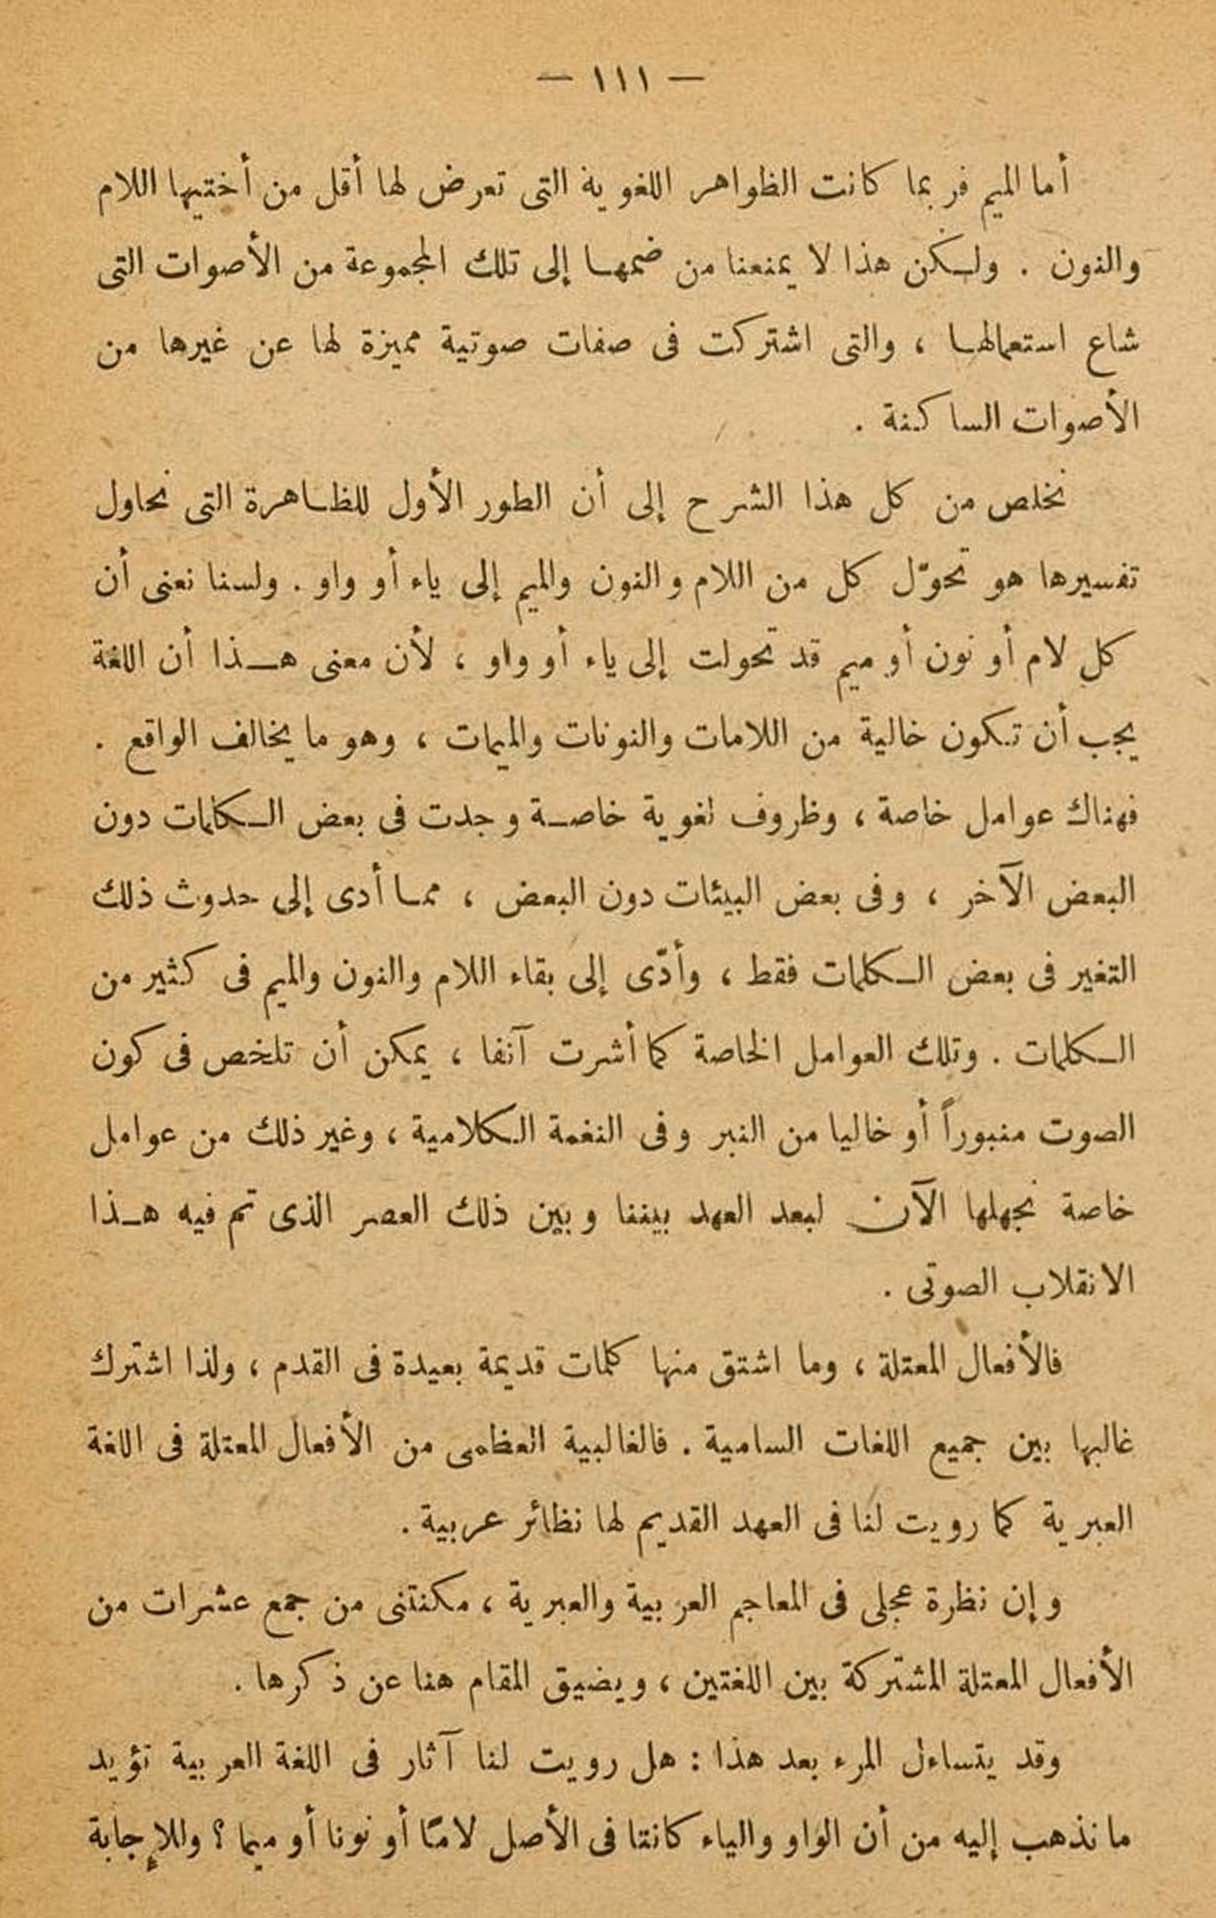 — ١١١ —
أما الميم فربما كانت الظواهر اللغوية التى تعرض لها أقل من أختيها اللام
والنون . ولكن هذا لا يمنعنا من ضمها إلى تلك المجموعة من الأصوات التى
شاع استعمالها ، والتى اشتركت فى صفات صوتية مميزة لها عن غيرها من
الأصوات الساكنة .
نخلص من كل هذا الشرح إلى أن الطور الأول للظاهرة التى نحاول
تفسيرها هو تحوّل كل من اللام والنون والميم إلى ياء أو واو . ولسنا نعنى أن
كل لام أو نون أو ميم قد تحولت إلى ياء أو واو ، لأن معنى هذا أن اللغة
يجب أن تكون خالية من اللامات والنونات والميمات ، وهو ما يخالف الواقع .
فهناك عوامل خاصة ، وظروف لغوية خاصة وجدت فى بعض الكلمات دون
البعض الآخر ، وفى بعض البيئات دون البعض ، مما أدى إلى حدوث ذلك
التغير فى بعض الكلمات فقط ، وأدّى إلى بقاء اللام والنون والميم فى كثير من
الكلمات . وتلك العوامل الخاصة كما أشرت آنفا ، يمكن أن تلخص فى كون
الصوت منبوراً أو خاليا من النبر وفى النغمة الكلامية ، وغير ذلك من عوامل
خاصة نجهلها الآن لبعد العهد بيننا وبين ذلك العصر الذى تم فيه هذا
الانقلاب الصوتى .
فالأفعال المعتلة ، وما اشتق منها كلمات قديمة بعيدة فى القدم ، ولذا اشترك
غالبها بين جميع اللغات السامية . فالغالبية العظمى من الأفعال المعتلة فى اللغة
العبرية كما رويت لنا فى العهد القديم لها نظائر عربية .
وإن نظرة عجلى فى المعاجم العربية والعبرية ، مكنتنى من جمع عشرات من
الأفعال المعتلة المشتركة بين اللغتين ، ويضيق المقام هنا عن ذكرها .
وقد يتساءل المرء بعد هذا : هل رويت لنا آثار فى اللغة العربية تؤيد
ما نذهب إليه من أن الواو والياء كانتا فى الأصل لامًا أو نونا أو ميما ؟ وللإجابة